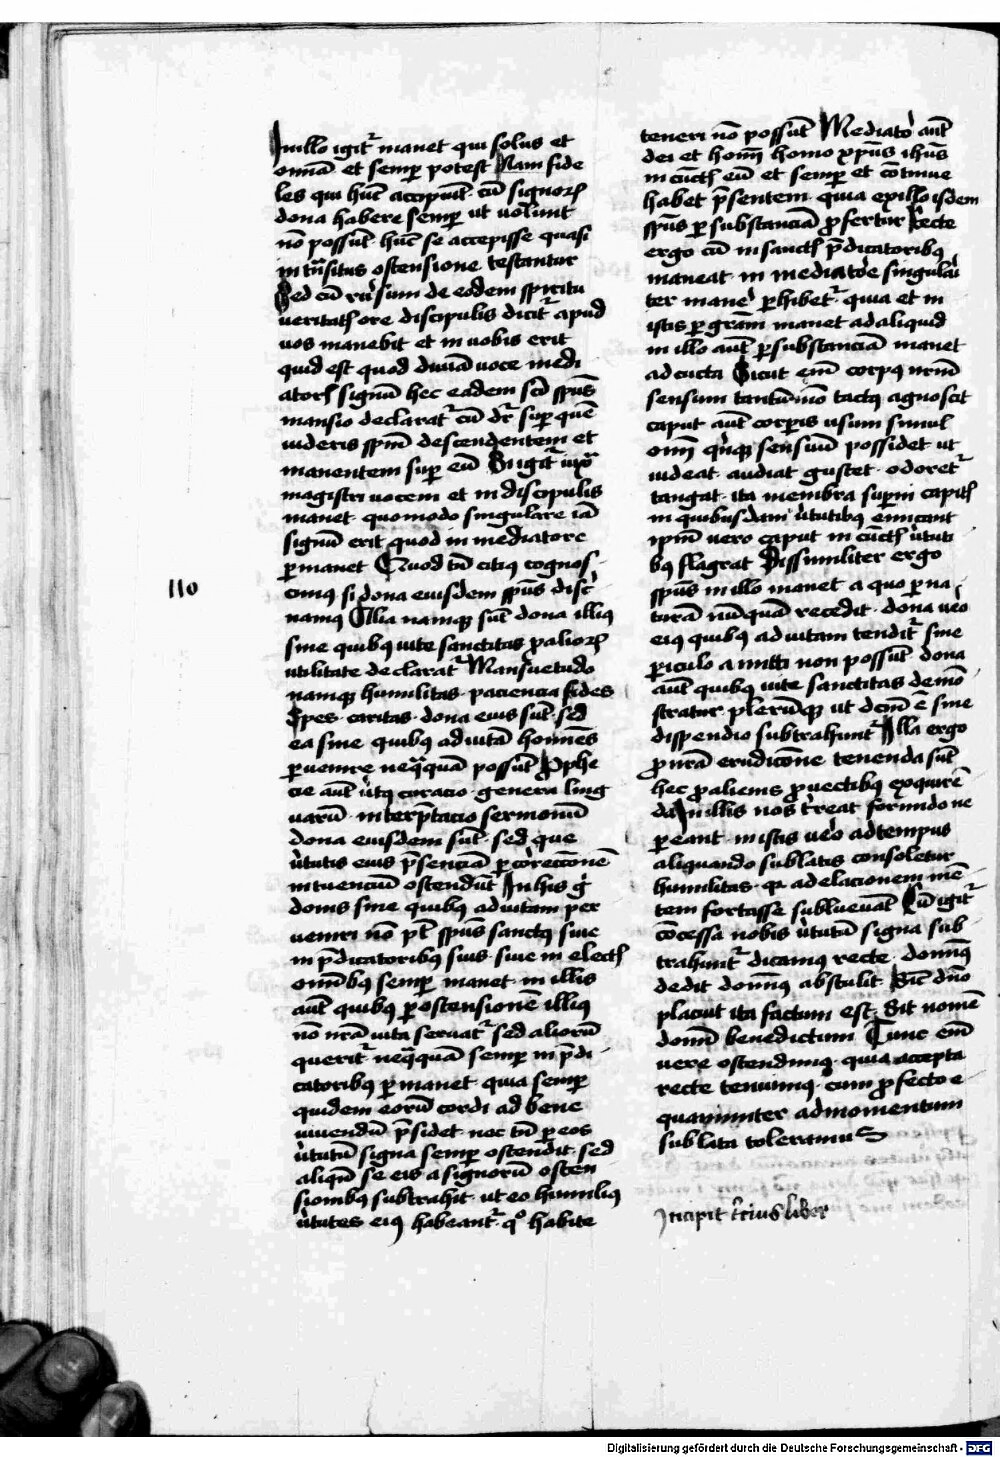 In illo igitᷣ manet qui solus et
om̄ia et semꝑ potest Nam fide
les qui hūc accipiūt cū signoꝝ
dona habere semꝑ ut uolunt
nō possūt hūc se accepisse quasi
in trāsitus ostensione testantur
Sed cū rursum de eodem spiritu
veritatis ore discipulis dicitᷣ apud
uos manebit et in uobis erit
quid est quod diuīa uoce medi
atoris signū hec eadem sc̄i sp̄us
mansio declaratᷣ cū dr̄ super quē
uideris sp̄m descendentem et
manentem suꝑ eū Si igitᷣ iuxͣ
magistri uocem et in discipulis
manet quomodo singulare iā
signū erit quod in mediatore
ꝑmanet Quod tn̄ citiꝰ cognos
cimꝰ si dona eiusdem sp̄us disc̄
namꝰ Alia namqꝫ sūt dona illiꝰ
sine quibꝰ uite sanctitas ꝓ alioꝝ
utilitate declaratᷣ Mansuetudo
namqꝫ humilitas paciencia fides
spes caritas dona eius sūt sed
ea sine quibꝰ ad uitā homīes
ꝑuenire neq̄quā possūt Ꝓphe
cie aūt ùtꝰ curacio genera ling
uarū interp̄tacio sermonū
dona eiusdem sūt sed que
ùtutis eius p̄senciā ꝑ correccōnē
intuenciū ostendūt In his g̊
donis sine quibꝰ ad uitam per
ueniri nō pōt sp̄us sanctꝰ siue
in p̄dicatoribꝰ suis siue in electis
om̄ibꝰ semꝑ manet in illis
aūt quibꝰ ꝑ ostensionē illiꝰ
nō nr̄a uita seruatᷣ sed aliorū
queritᷣ neq̄quā semꝑ in p̄di
catoribꝰ ꝑmanet quia semꝑ
quidem eorū cordi ad bene
uiuendū p̄sidet nec tn̄ ꝑ eos
ùtutū signa semꝑ ostendit sed
aliqn̄ se eis a signorū osten
sionibꝰ subtrahit ut eo humiliꝰ
ùtutes eiꝰ habeantᷣ qͦ habite
110
teneri nō possūt Mediator aūt
dei et hom̄ homo xp̄us ihūs
in cūctis eū et semꝑ et cōtinue
habet p̄sentem quia ex illo isdem
sp̄us ꝑ substanciā ꝓfertur Recte
ergo cū in sanctis p̄dicatoribꝰ
maneat in mediatore singulari
ter manere ꝑhibetᷣ quia et in
istis ꝑ grām manet ad aliquid
in illo aūt ꝑ substanciā manet
ad cūcta Sicut em̄ corpꝰ nr̄m
sensum tantū mō tactꝰ agnoscit
caput aūt corꝑis usum simul
om̄ quinqꝫ sensuū possidet ut
uideat audiat gustet odoretᷣ
tangat ita membra suꝑni capitis
in quibusdam ùtutibꝰ emicant
ip̄m uero caput in cūctis ùtuti
bꝰ flagrat Dissimiliter ergo
sp̄us in illo manet a quo ꝑ na
turā nūquā recedit dona uero
eiꝰ quibꝰ ad uitam tenditᷣ sine
ꝑiculo amitti non possūt dona
aūt quibꝰ uite sanctitas demō
stratur plerūqꝫ ut dc̄m ē sine
dispendio subtrahuntᷣ Illa ergo
ꝓ nr̄a erudicōne tenenda sūt
hec ꝓ alienis ꝓuectibꝰ exquirē
da In illis nos t̄reat formido ne
ꝑeant in istis uero ad tempus
aliquando sublatis consoletur
humilitas qꝫ ad elacionem mē
tem fortasse subleuāt Cū igitᷣ
cōcessa nobis ùtutū signa sub
trahuntᷣ dicamꝰ recte domīꝰ
dedit domīꝰ abstulit Sic̄ dn̄o
placuit ita factum est Sit nomē
domī benedictum Tunc em̄
uere ostendimꝰ quia accepta
recte tenuimꝰ cum ꝓfecto e
quanimiter ad momentum
sublata toleramus
Incipit t̄cius liber
Digitalisierung gefördert durch die Deutsche Forschungsgemeinschaft - DFG